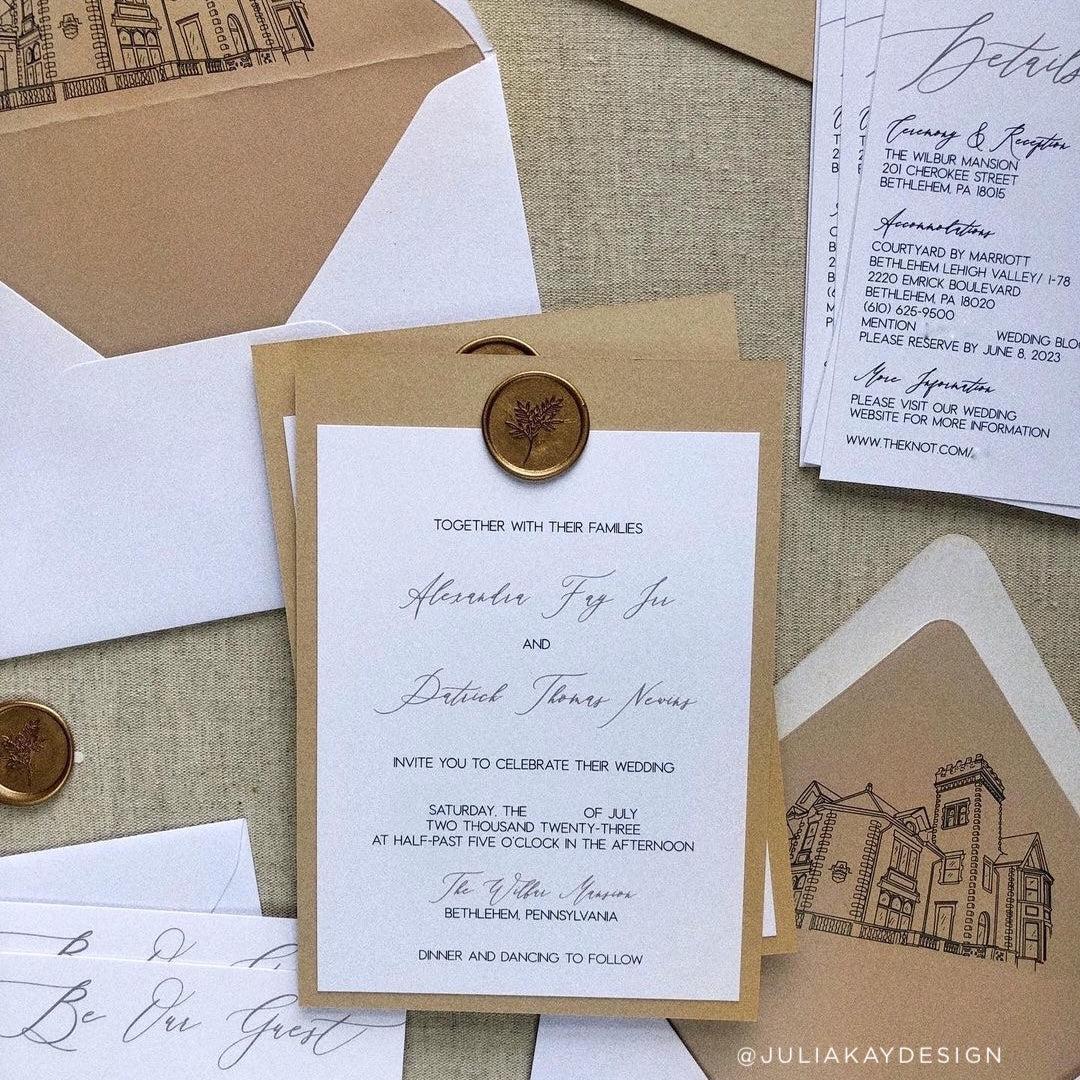 Details
Ceremony & Reception
THE WILBUR MANSION
201 CHEROKEE STREET
BETHLEHEM, PA 18015
Accommodations
COURTYARD BY MARRIOTT
BETHLEHEM LEHIGH VALLEY/ I-78
2220 EMRICK BOULEVARD
BETHLEHEM, PA 18020
(610) 625-9500
MENTION WEDDING
PLEASE RESERVE BY JUNE 8, 2023
More Information
PLEASE VISIT OUR WEDDING
WEBSITE FOR MORE INFORMATION
WWW.THEKNOT.COM/
TOGETHER WITH THEIR FAMILIES
Alexandra Fay
AND
Patrick Thomas Nevins
INVITE YOU TO CELEBRATE THEIR WEDDING
SATURDAY, THE OF JULY
TWO THOUSAND TWENTY-THREE
AT HALF-PAST FIVE O'CLOCK IN THE AFTERNOON
The Wilbur Mansion
BETHLEHEM, PENNSYLVANIA
DINNER AND DANCING TO FOLLOW
Be Our Guest
@JULIAKAYDESIGN